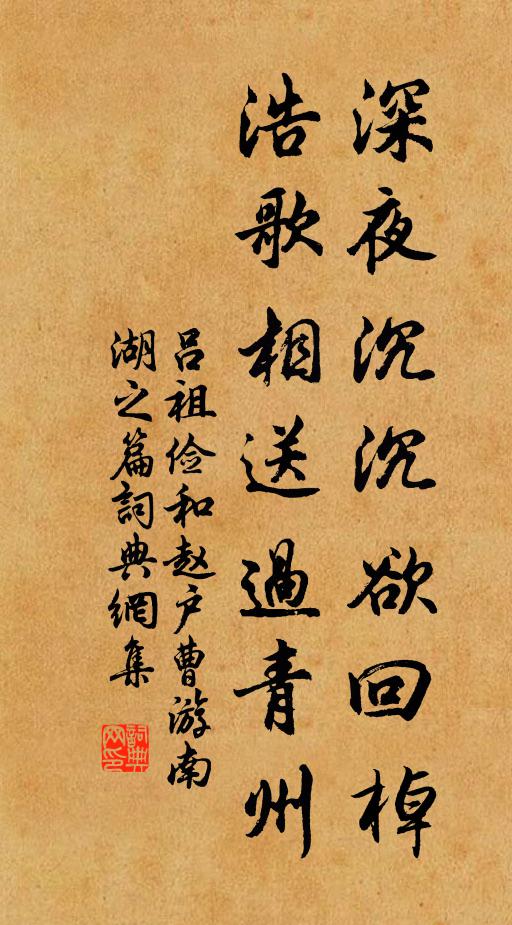 深夜沉沉欲回棹
浩歌相送過青州
吕祖俭和赵户曹游南
湖之篇詞典網集
詞典網印